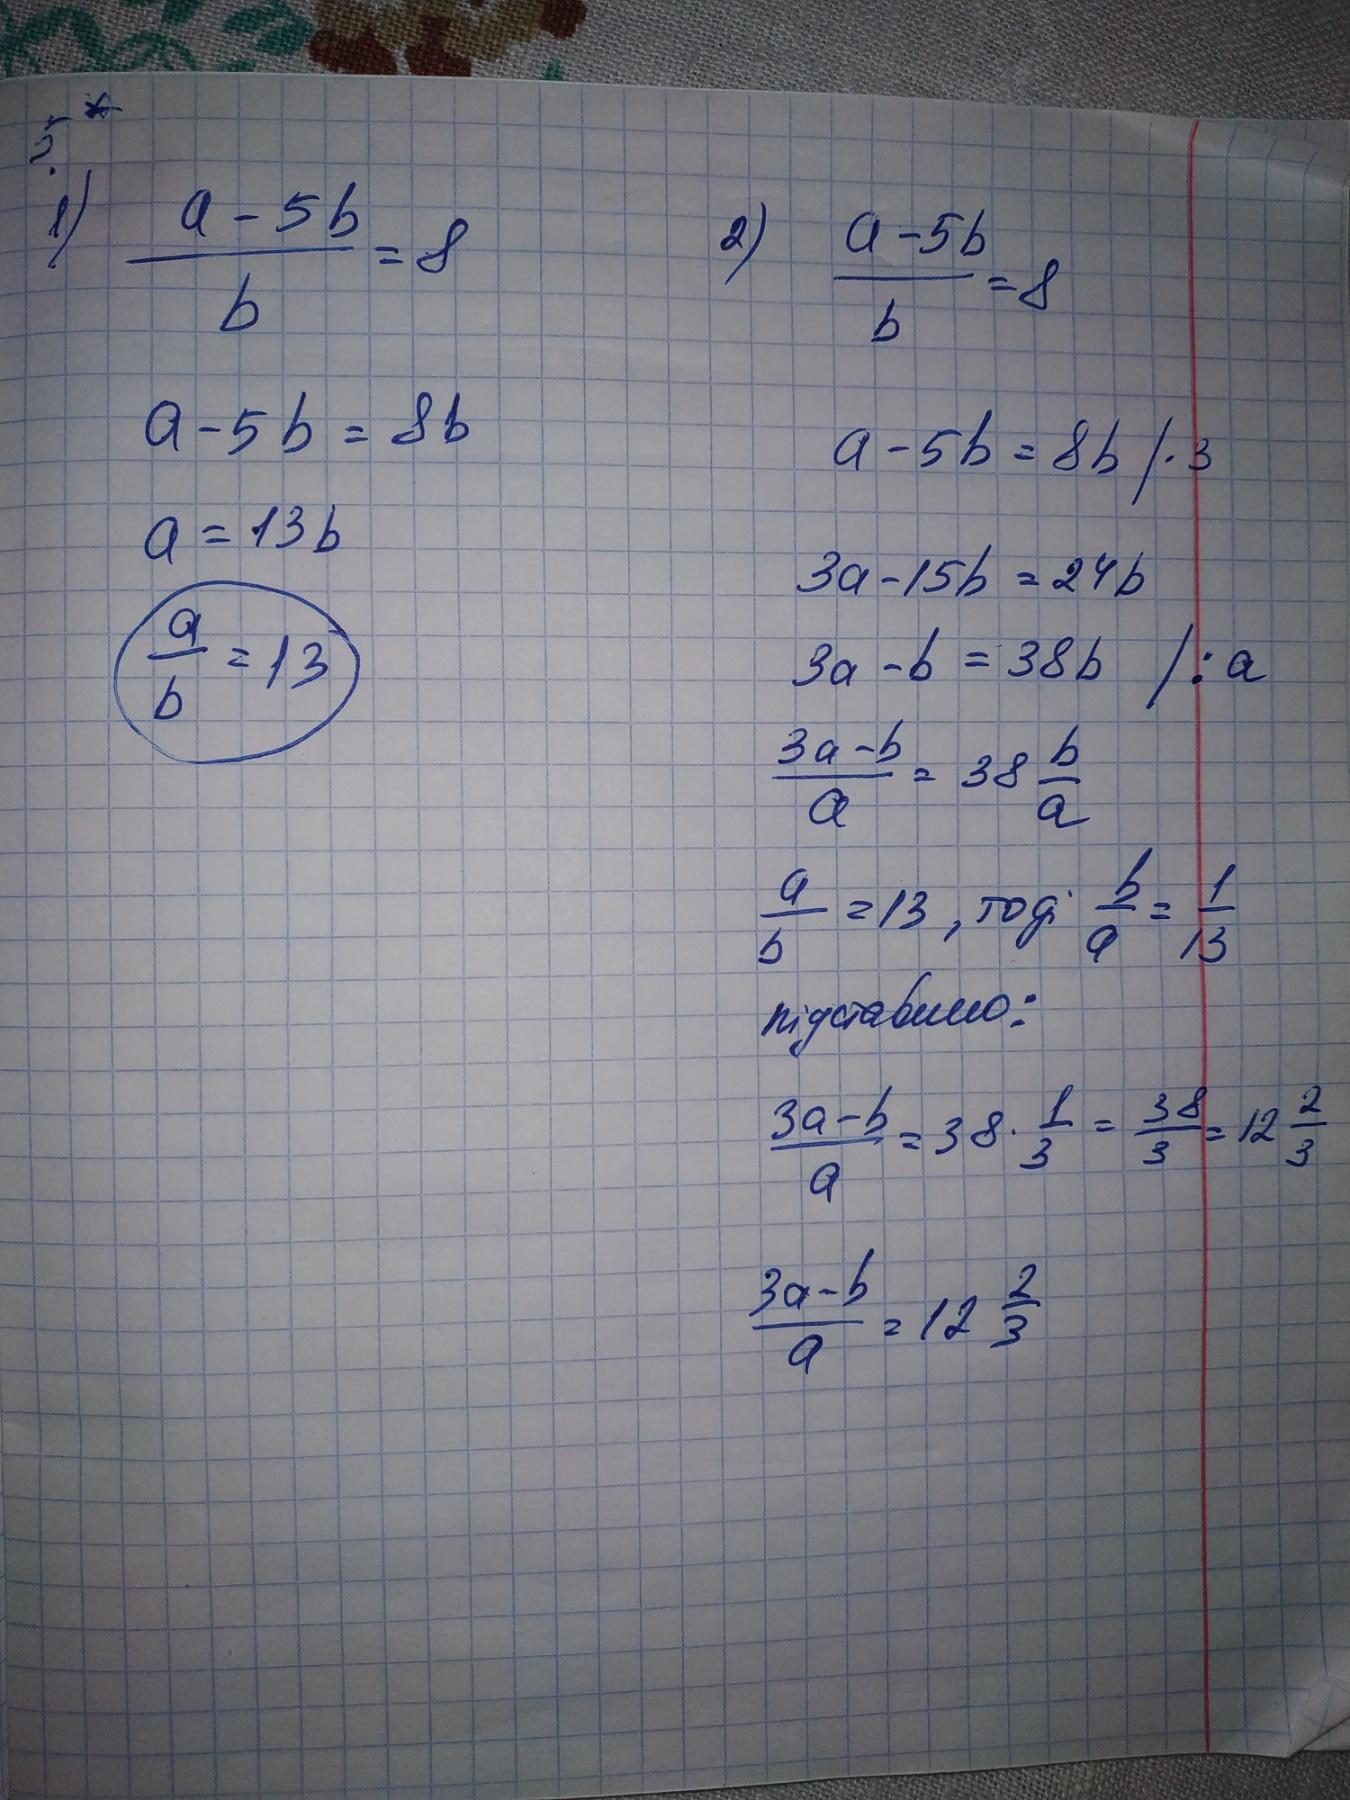 5*
1) (a - 5b)/b = 8
a - 5b = 8b
a = 13b
a/b = 13
2) (a - 5b)/b = 8
a - 5b = 8b /·3
3a - 15b = 24b
3a - b = 38b /:a
(3a - b)/a = 38 b/a
a/b = 13, тоді b/a = 1/13
підставимо:
(3a - b)/a = 38 · 1/3 = 38/3 = 12 2/3
(3a - b)/a = 12 2/3